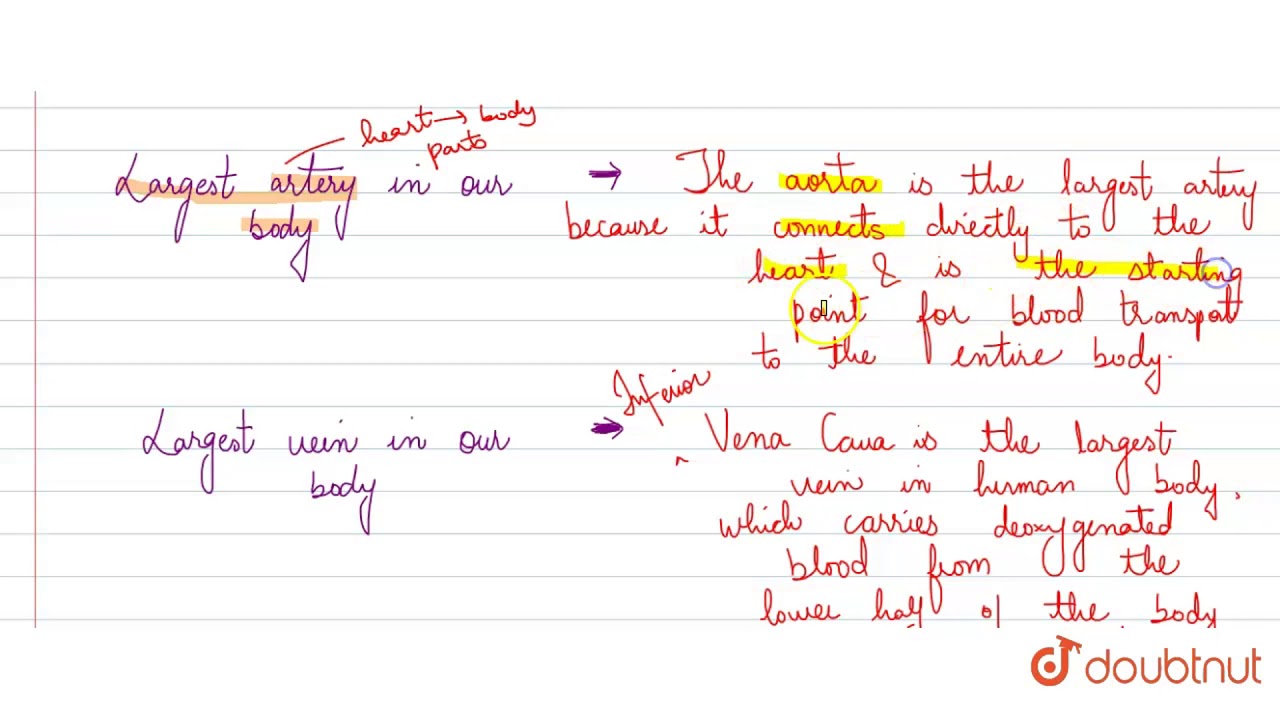 heart → body
parts
Largest artery in our
body
→ The aorta is the largest artery
because it connects directly to the
heart & is the starting
point for blood transpot
to the entire body.
Largest vein in our
body
→ Inferior
^ Vena Cava is the largest
vein in human body,
which carries deoxygenated
blood from the
lower half of the body
doubtnut